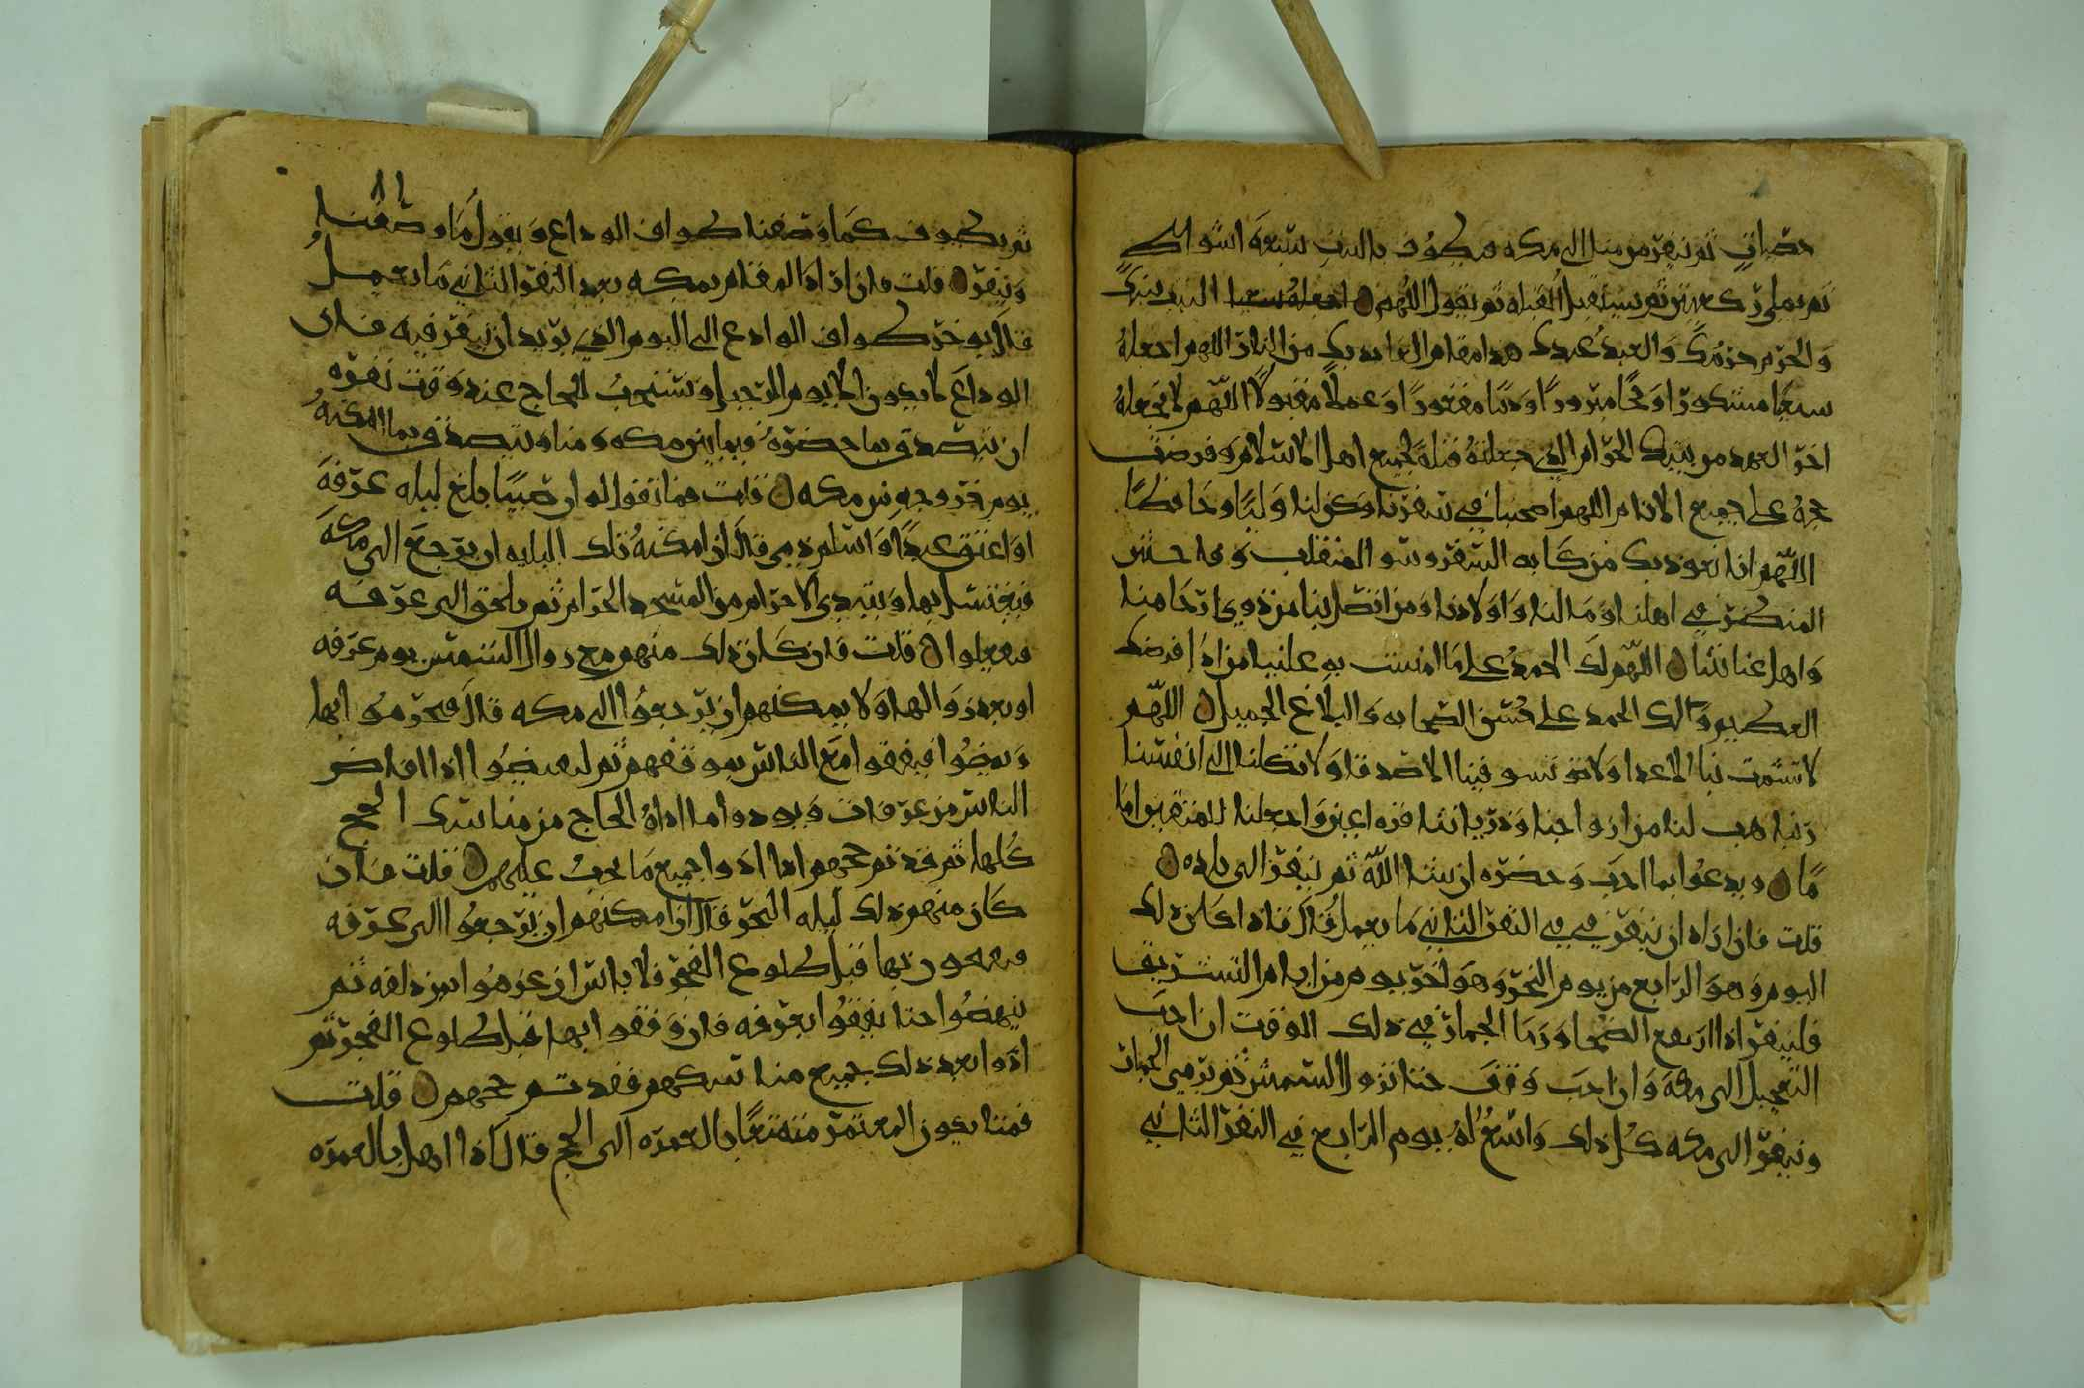 حصيات ثم ينفر من منا الى مكه فيطوف بالبيت سبعة اشواط
ثم يصلي ركعتين ثم يستقبل القبله ثم يقول اللهم البيت بيتك
والحرم حرمك والعبد عبدك هذا مقام العايذ بك من النار اللهم اجعله
سعيا مشكورا وحجا مبرورا وذنبا مغفورا وعملا مقبولا اللهم لا تجعله
اخر العهد من بيتك الحرام الذي جعلته قبلة لجميع اهل الاسلام وفرضت
حجه على جميع الانام اللهم اصحبنا في سفرنا وكن لنا وليا وحافظا
اللهم انا نعوذ بك من كابه السفر وسو المنقلب وفاحش
المنظر في اهلنا ومالنا واولادنا ومن اتصل بنا من ذوي ارحامنا
واهل عنايتنا اللهم لك الحمد على ما مننت به علينا من اداء فرضك
العظيم ولك الحمد على حسن الصحابه والبلاغ الجميل اللهم
لا تشمت بنا الاعدا ولا تسو فينا الاصدقا ولا تكلنا الى انفسنا
ربنا هب لنا من ازواجنا وذرياتنا قره اعين واجعلنا للمتقين اما
ما ويدعوا بما احب وحضره ان شا الله ثم ينفر الى بلده
قلت فان اراد ان ينفر في في النفر الثاني ما يعمل قال فاذا كان ذلك
اليوم وهو الرابع من يوم النحر وهو اخر يوم من ايام التشريق
فلينفر اذا ارتفع الضحا ورما الجمار في ذلك الوقت ان احب
التعجيل الى مكة وان احب وقف حتا تزول الشمس ثم يرمي الجمار
وينفر الى مكه كل ذلك واسع له يوم الرابع في النفر الثاني
ثم يطوف كما وصفنا طواف الوداع ويقول ما وصفنا
وينفر قلت فان اراد المقام بمكه بعد النفر الثاني ما يعمل
قال يوخر طواف الوادع الى اليوم الذي يريد ان ينفر فيه فان
الوداع لا يكون الا يوم الرحيل ويستحب للحاج عند وقت نفره
ان يتصدق بما حضره فيما بين مكه ومنا ويتصدق بما امكنه
يوم خروجه من مكه قلت فما تقول لو ان صبيا بلغ ليله عرفة
او اعتق عبدا او اسلم ذمي قال ان امكنه تلك الليله ان يرجع الى مكة
فيغتسل بها ويبتدي الاحرام من المسجد الحرام ثم يلحق الى عرفه
فيعلوا قلت فان كان ذلك منهم مع زوال الشمس يوم عرفه
او بعد زوالها ولا يمكنهم ان يرجعوا الى مكه قال فيحرموا بها
ويمضوا فيقفوا مع الناس بموقفهم ثم ليفيضوا اذا افاض
الناس من عرفات ويودوا ما اداه الحاج من مناسك الحج
كلها ثم قد تم حجهم اذا ادوا جميع ما يجب عليهم قلت فان
كان منهم ذلك ليله النحر قال ان امكنهم ان يرجعوا الى عرفه
فيقفون بها قبل طلوع الفجر فلا باس ان عزموا من مزدلفه ثم
ينهضوا حتا يقفوا بعرفه فان وقفوا بها قبل طلوع الفجر ثم
ادوا بعد ذلك جميع مناسكهم فقد تم حجهم قلت
فمتا يكون المعتمر متمتعا بالعمره الى الحج قال اذا اهل بالعمره